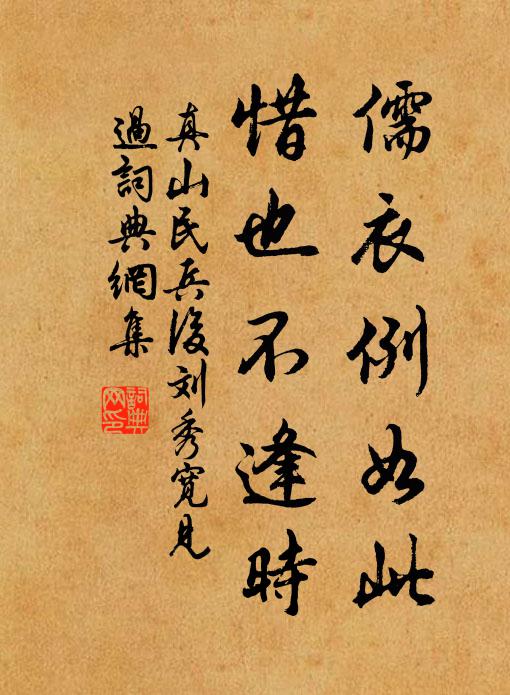 儒衣例如此
惜也不逢時
真山民兵後刘秀寬見
過詞典網集
詞典
网印